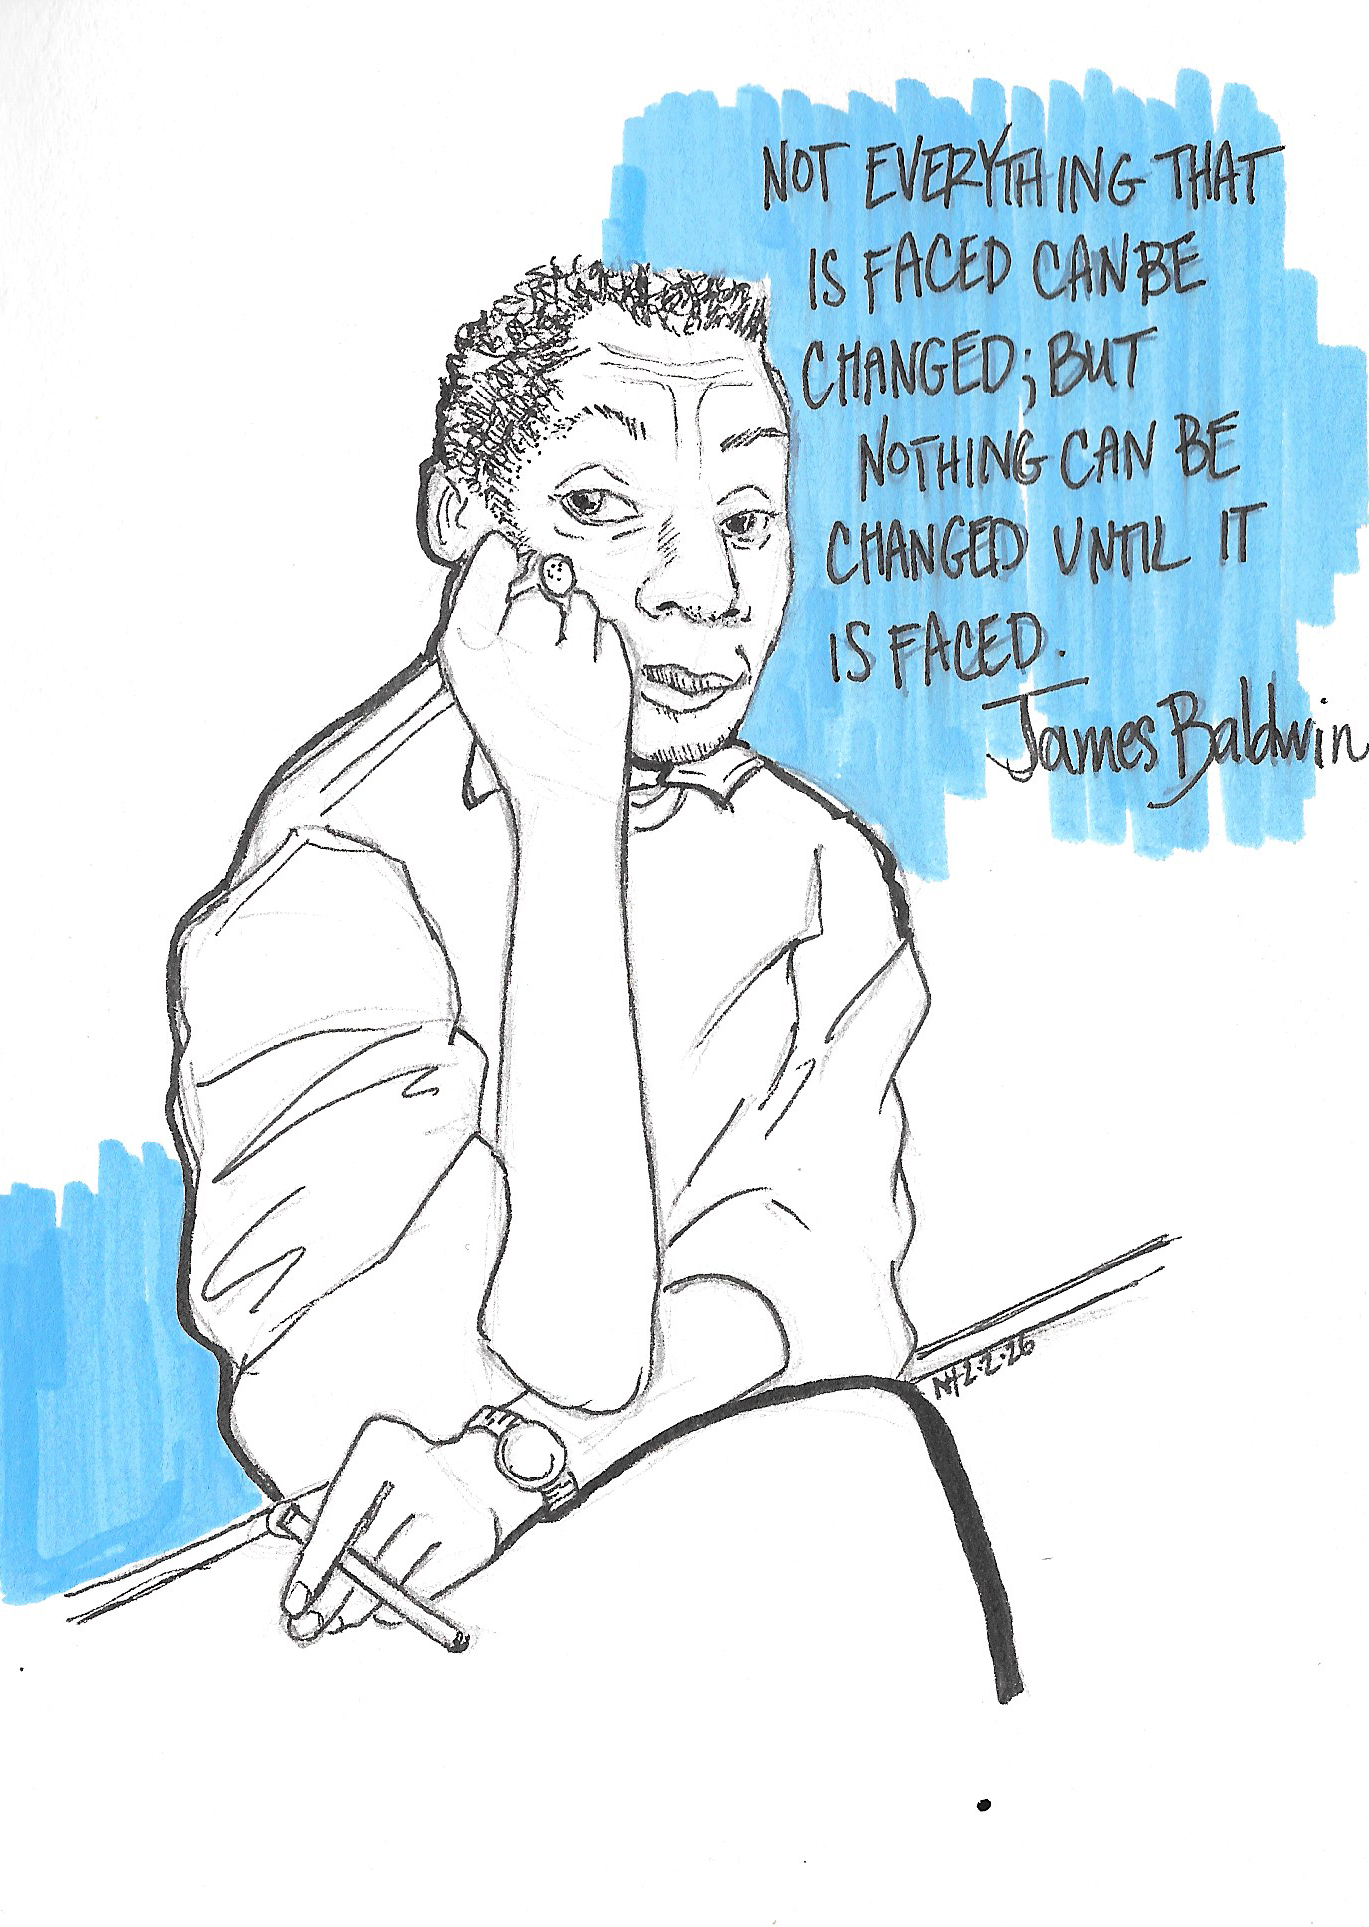 NOT EVERYTHING THAT
IS FACED CAN BE
CHANGED; BUT
NOTHING CAN BE
CHANGED UNTIL IT
IS FACED.
James Baldwin
NH 2.2.26